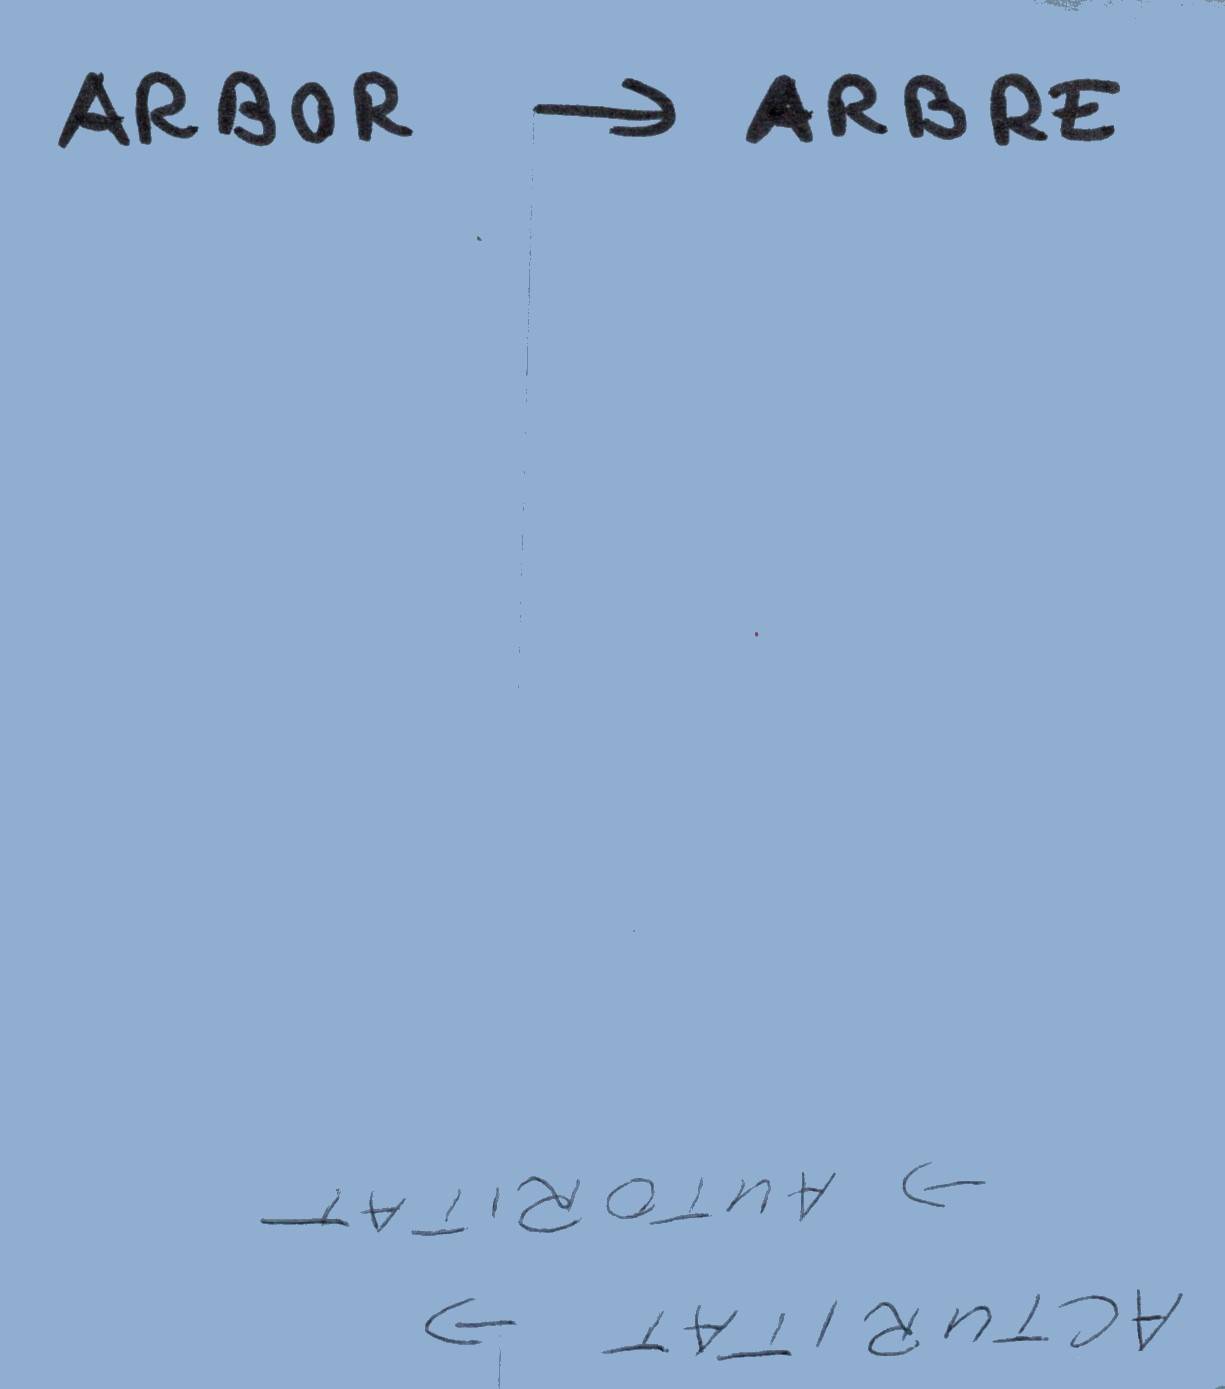 ARBOR → ARBRE
ACTURITAT →
→ AUTORITAT